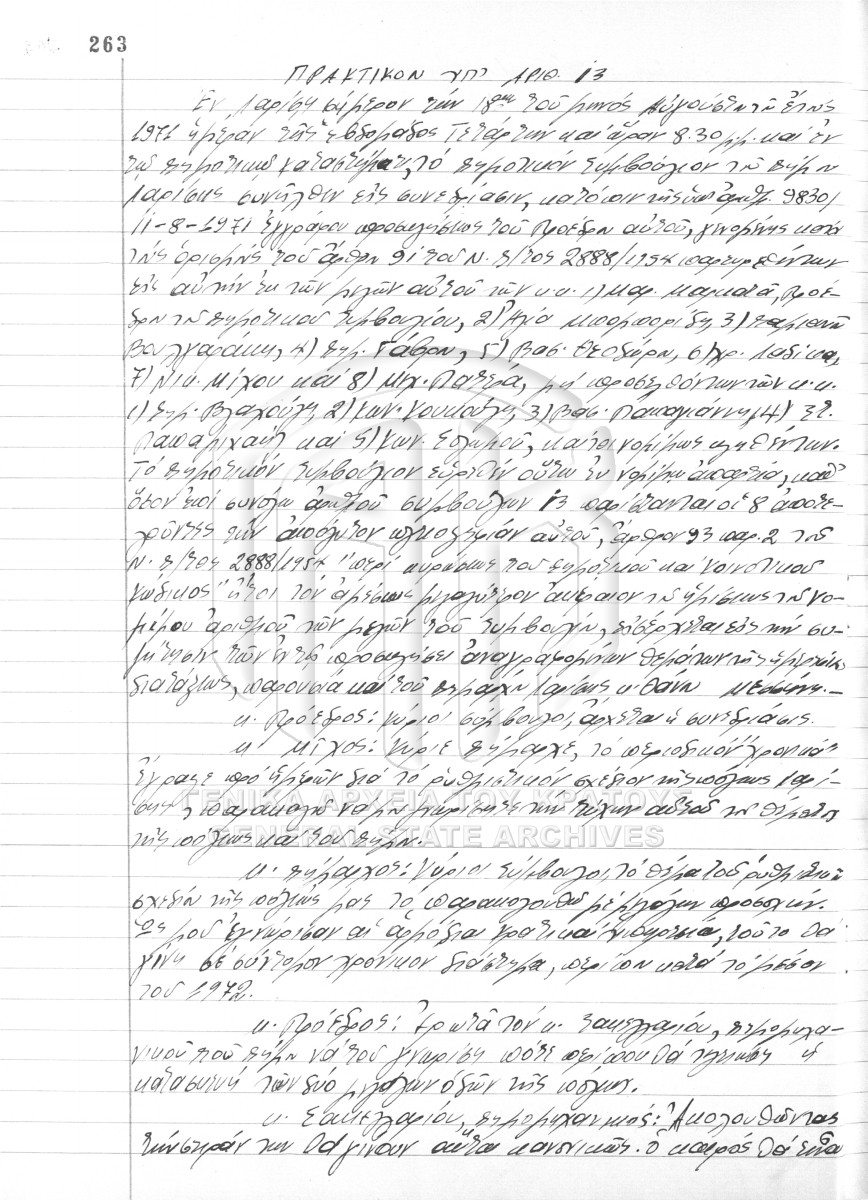 263
ΠΡΑΚΤΙΚΟΝ ΥΠ' ΑΡΙΘ. 13
Ἐν Λαρίσῃ σήμερον τὴν 18ην τοῦ μηνός Αὐγούστου τοῦ ἔτους
1971 ἡμέραν τῆς ἑβδομάδος Τετάρτην καὶ ὥραν 8.30 μ.μ. καὶ ἐν
τῷ δημοτικῷ καταστήματι, τό δημοτικόν συμβούλιον τοῦ Δήμου
Λαρίσης συνῆλθεν εἰς συνεδρίασιν, κατόπιν τῆς ὑπ' ἀριθ. 9830/
11-8-1971 ἐγγράφου προσκλήσεως τοῦ Προέδρου αὐτοῦ, γενομένης κατά
τούς ὁρισμούς τοῦ ἄρθρου 91 τοῦ Ν. Δ/τος 2888/1954 παρευρεθέντων
εἰς αὐτήν ἐκ τῶν μελῶν αὐτοῦ τῶν κ.κ. 1) Μαρ. Μαρκατᾶ, Προέ-
δρου τοῦ Δημοτικοῦ Συμβουλίου, 2) Ἠλία Μπομπορίδη, 3)
Βουλγαράκη, 4) Δημ. Γάβρου, 5) Βασ. Θεοδώρου, 6) Χρ. Λαδίκα,
7) Νικ. Μίχου καί 8) Μιχ. Πατέρα, μή προσελθόντων τῶν κ.κ.
1) Δημ. Βλαχούλη, 2) Κων. Κουκούτση, 3) Βασ. Παπαγιάννη, 4) Στ.
Παπαμιχαήλ καί 5) Κων. καίτοι νομίμως κληθέντων.
Τό Δημοτικόν Συμβούλιον εὑρεθέν οὕτω ἐν νομίμῳ ἀπαρτίᾳ, καθ'
ὅσον ἐπί συνόλου ἀριθμοῦ συμβούλων 13 παρίστανται οἱ 8 ἀποτε-
λοῦντες τήν ἀπόλυτον πλειοψηφίαν αὐτοῦ, ἄρθρον 93 παρ. 2 τοῦ
Ν. Δ/τος 2888/1954 "περί κυρώσεως τοῦ δημοτικοῦ καί κοινοτικοῦ
κώδικος" ἤτοι τόν ἀμέσως μεγαλύτερον ἀκέραιον τοῦ ἡμίσεως τοῦ νο-
μίμου ἀριθμοῦ τῶν μελῶν τοῦ Συμβουλίου, εἰσέρχεται εἰς τήν συ-
ζήτησιν τῶν ἐν τῇ προσκλήσει ἀναγραφομένων θεμάτων τῆς ἡμερησίας
διατάξεως, παρουσίᾳ καί τοῦ Δημάρχου Λαρίσης κ. Θάνου Μεσσήνη.-
κ. Πρόεδρος: Κύριοι σύμβουλοι, ἄρχεται ἡ συνεδρίασις.
κ. Μίχος: Κύριε Δήμαρχε, τό περιοδικόν "Χρονικά"
ἔγραψε πρό ἡμερῶν διά τό ρυθμιστικόν σχέδιον τῆς πόλεως Λαρί-
σης, παρακαλῶ νά μᾶς γνωρίσητε τήν τύχην αὐτοῦ τοῦ θέματος
τῆς πόλεως καί τοῦ Δήμου.
κ. Δήμαρχος: Κύριοι Σύμβουλοι, τό θέμα τοῦ ρυθμιστικοῦ
σχεδίου τῆς πόλεώς μας τό παρακολουθῶ μέ μεγάλην προσοχήν.
Ὡς μοῦ ἐγνώρισαν αἱ ἁρμόδιαι κρατικαί ὑπηρεσίαι, τοῦτο θά
γίνῃ σέ σύντομον χρονικόν διάστημα, περίπου κατά τό μέσον
τοῦ 1972.
κ. Πρόεδρος: Ἐρωτᾶ τόν κ. Σακελλαρίου, δημομηχα-
νικόν τοῦ Δήμου νά τοῦ γνωρίσῃ πότε περίπου θά τελειώσῃ ἡ
κατασκευή τῶν δύο μεγάλων ὁδῶν τῆς πόλεως.
κ. Σακελλαρίου, δημομηχανικός: Ἀκολουθῶντας
τήν σειράν των θά γίνουν αὗται κανονικῶς. ὁ καιρός θά εἶναι
ΓΕΝΙΚΑ ΑΡΧΕΙΑ ΤΟΥ ΚΡΑΤΟΥΣ
GENERAL STATE ARCHIVES